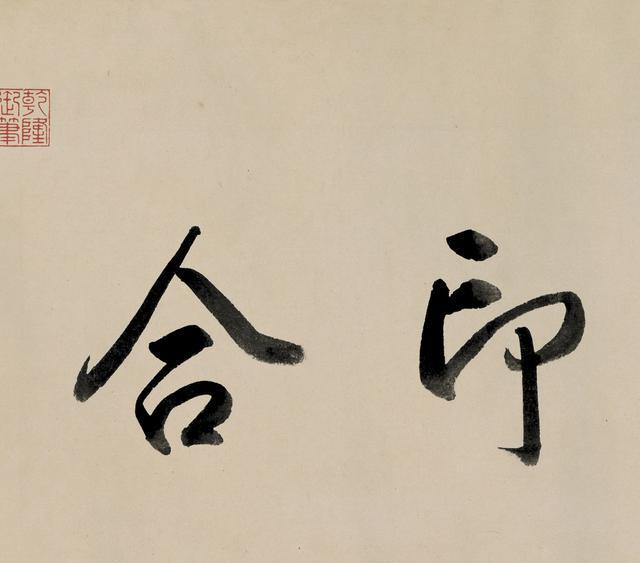 印合
乾隆御筆